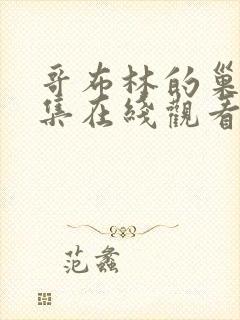 哥布林的巢
集在綫觀看
范蠡